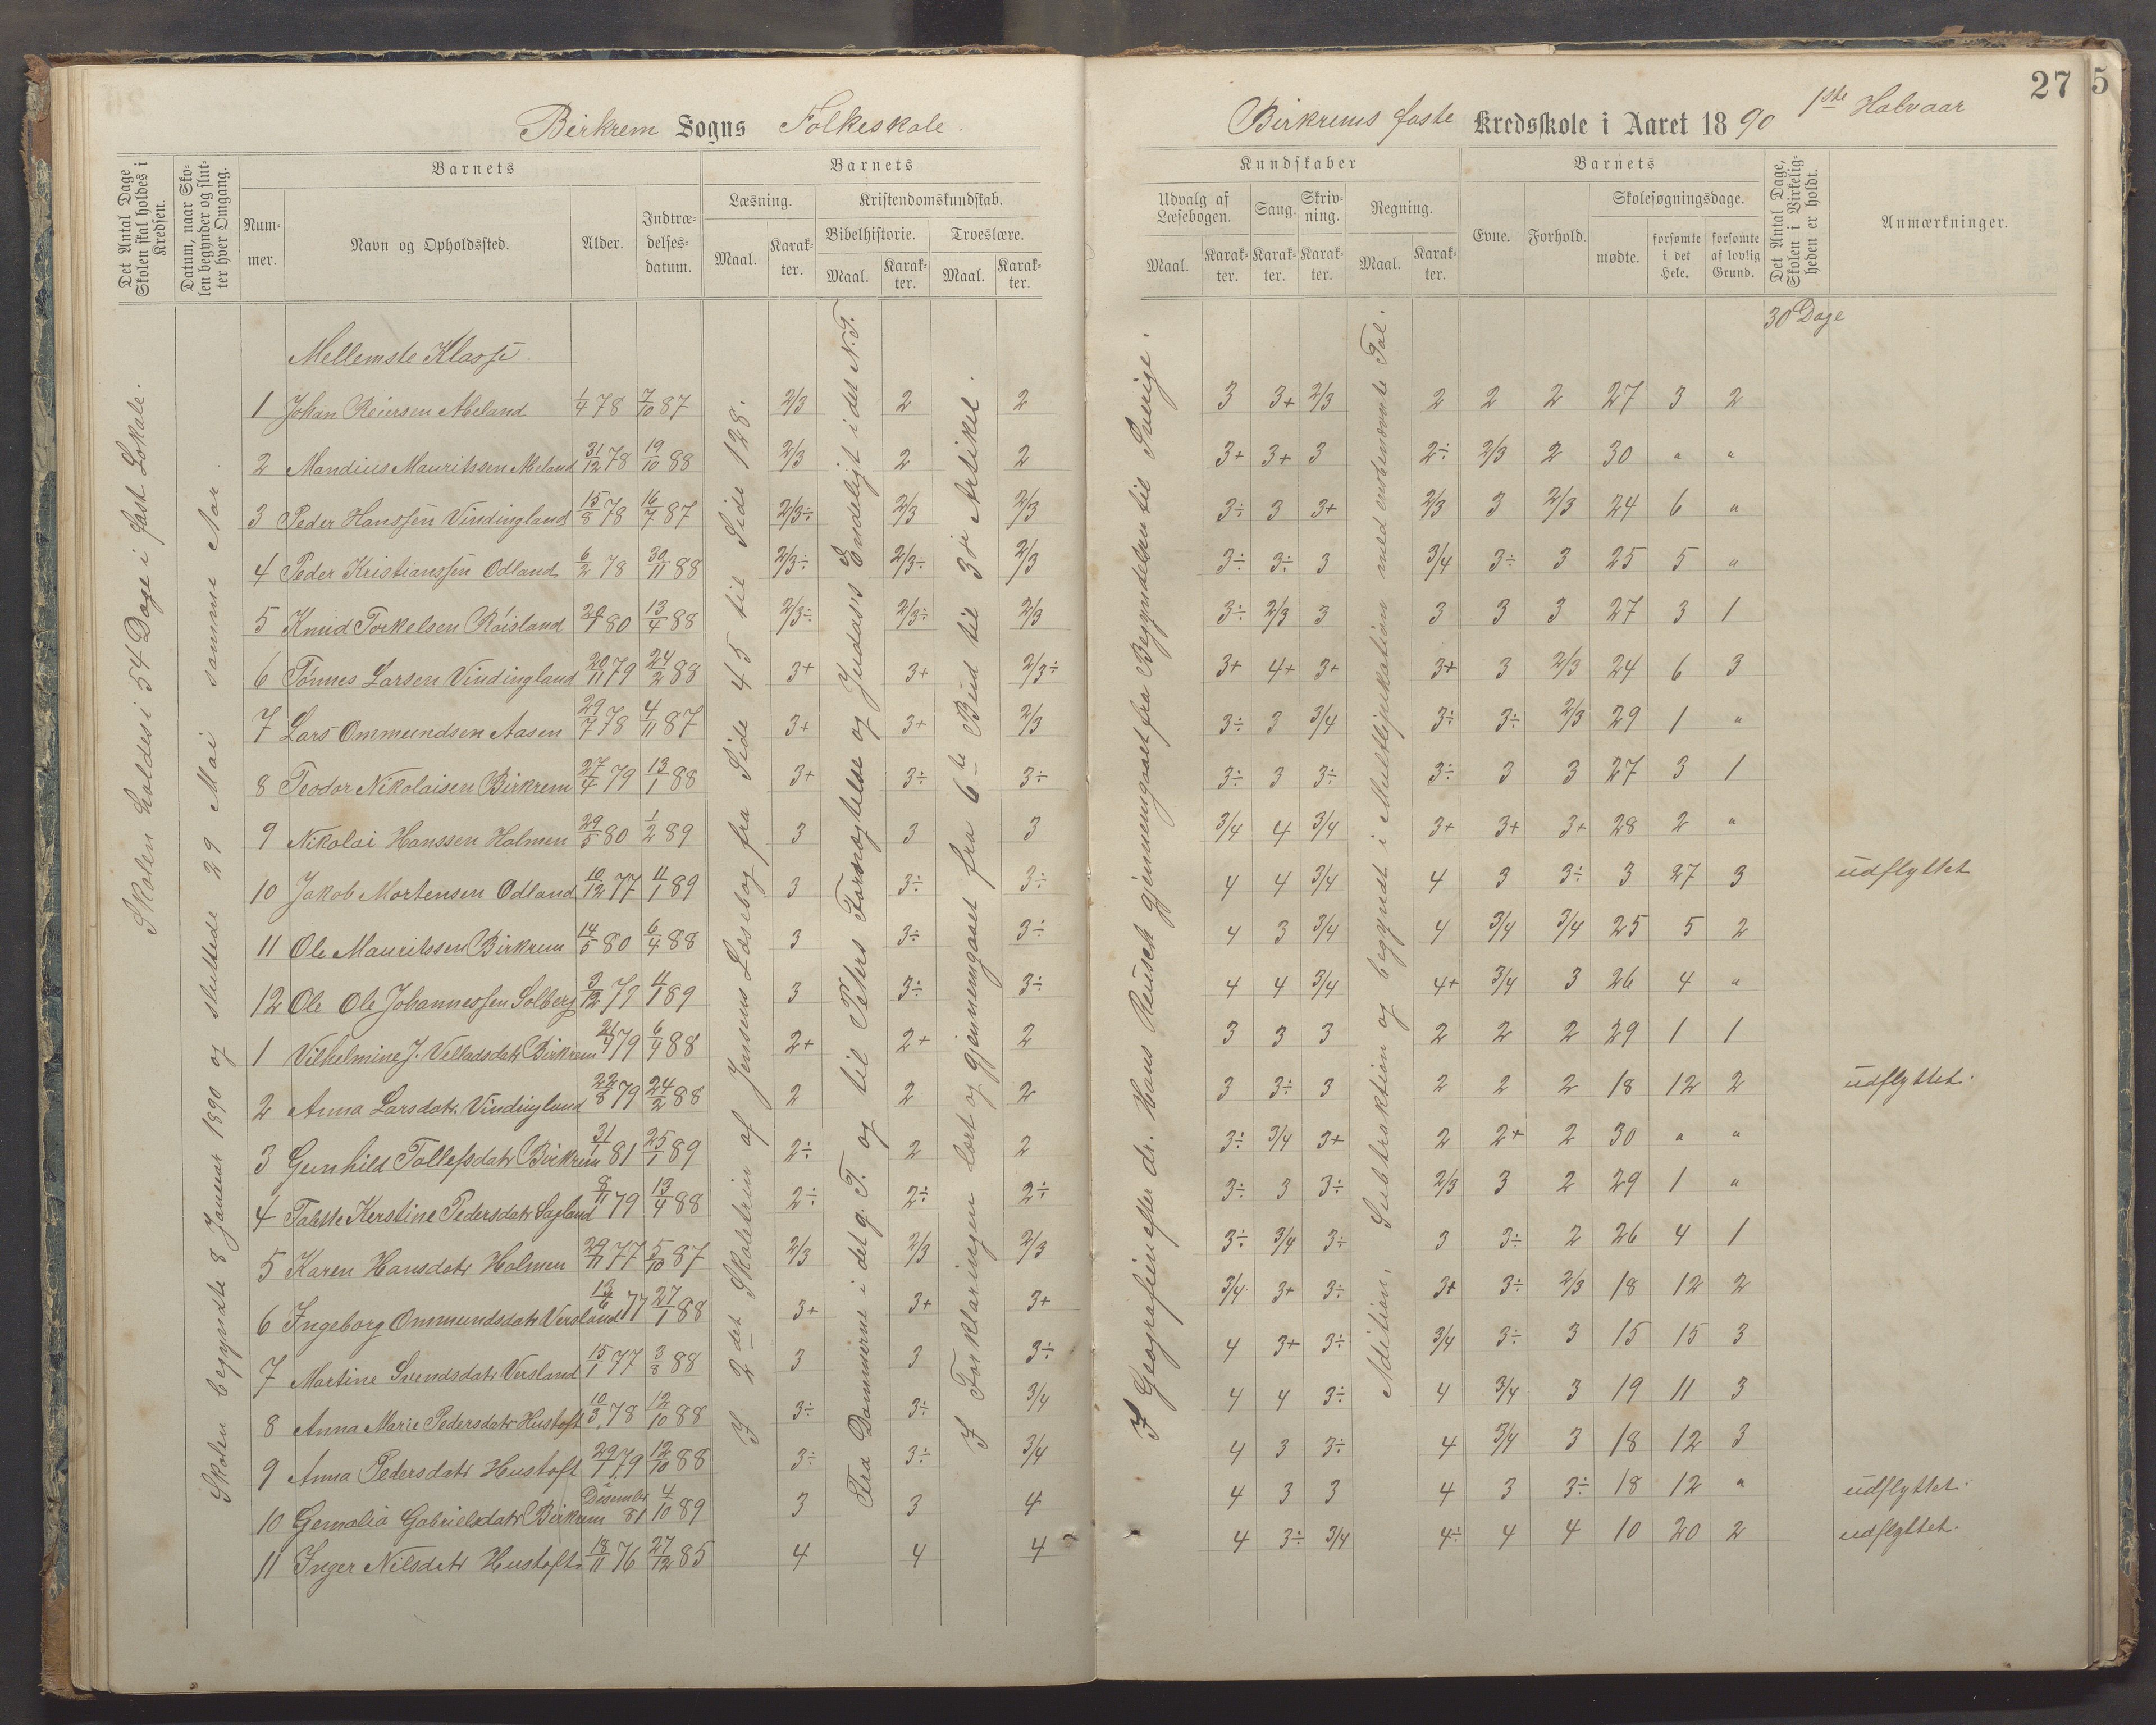 Birkrem Sogns Folkeskole.
Det Antal Dage Skolen skal holdes i Kredsen.
Datum, naar Skolen begynder og slutter hver Omgang.
Barnets
Nummer.
Navn og Opholdssted.
Alder.
Indtrædelsesdatum.
Barnets
Læsning.
Maal.
Karakter.
Kristendomskundskab.
Bibelhistorie.
Maal.
Karakter.
Troeslære.
Maal.
Karakter.
Skolen holdes i 54 Dage i fast Lokale.
Skolen begyndte 8 Januar 1890 og sluttede 29 Mai samme Aar.
I 2det Skoletrin af Jensens Læsebog fra Side 45 til Side 128.
Fra Dommerne i det g. T. og til Peters Fornægtelse og Judas's Endeligt i det N.T.
I Forklaringen lært og gjennemgaaet fra 6te Bud til 3die Artikel.
Mellemste Klasse.
1 Johan Reiersen Meland 1/4 78 7/10 87 2/3 2 2
2 Mandius Mauritssen Meland 31/12 78 19/10 88 2/3 2 2
3 Peder Hanssen Vindingland 15/8 78 16/7 87 2/3÷ 2/3 2/3
4 Peder Kristianssen Odland 6/2 78 30/11 88 2/3÷ 2/3÷ 2/3
5 Knud Torkelsen Röisland 29/1 80 13/4 88 2/3÷ 2/3÷ 2/3
6 Tönnes Larsen Vindingland 20/11 79 24/2 88 3+ 3+ 2/3÷
7 Lars Ommundsen Aasen 29/7 78 4/11 87 3+ 3+ 2/3
8 Teodor Nikolaisen Birkrem 27/4 79 13/1 88 3+ 3÷ 3÷
9 Nikolai Hanssen Holmen 29/5 80 1/2 89 3 3 3
10 Jakob Mortensen Odland 10/12 77 4/1 89 3 3÷ 3÷
11 Ole Mauritssen Birkrem 14/5 80 6/4 88 3 3÷ 3÷
12 Ole Ole Johannessen Solberg 3/12 79 4/1 89 3 3÷ 3÷
1 Vilhelmine J. Velladsdatr Birkrem 21/4 79 6/4 88 2+ 2+ 2
2 Anna Larsdatr. Vindingland 22/8 79 24/2 88 2 2 2
3 Gunhild Tollefsdatr Birkrem 31/1 81 25/1 89 2÷ 2 2
4 Talette Kerstine Pedersdatr Sagland 8/11 79 13/4 88 2÷ 2÷ 2÷
5 Karen Hansdatr Holmen 29/11 77 5/10 87 2/3 2/3 2/3
6 Ingeborg Ommundsdatr Versland 13/6 77 27/1 88 3+ 3+ 3+
7 Martine Svendsdatr Versland 15/1 77 3/8 88 3 3 3÷
8 Anna Marie Pedersdatr Hustoft 10/3 78 12/10 88 3÷ 3÷ 3/4
9 Anna Pedersdatr Hustoft 29/1 79 12/10 88 3÷ 3÷ 3/4
10 Gemalia Gabrielsdatr Birkrem Desember 81 4/10 89 3 3 4
11 Inger Nilsdatr Hustoft 18/11 76 27/12 85 4 4 4
27
5
Birkrems faste Kredsskole i Aaret 1890 1ste Halvaar
Kundskaber
Udvalg af Læsebogen.
Maal.
Karakter.
Sang.
Karakter.
Skrivning.
Karakter.
Regning.
Maal.
Karakter.
Barnets
Evne.
Forhold.
Skolesøgningsdage.
mødte.
forsømte i det Hele.
forsømte af lovlig Grund.
Det Antal Dage, Skolen i Virkeligheden er holdt.
Anmærkninger.
I Geografien efter dr. Hans Reusch gjennemgaaet fra Begyndelsen til Sverige.
Adition, Subtraktion og begyndt i Multlipikation med ensbenævnte Tal.
30 Dage
3 3+ 2/3 2 2 2 27 3 2
3+ 3+ 3 2÷ 2/3 2 30 " "
3÷ 3 3+ 2/3 3 2/3 24 6 "
3÷ 3÷ 3 3/4 3÷ 3 25 5 "
3÷ 2/3 3 3 3 3 27 3 1
3+ 4+ 3+ 3+ 3 2/3 24 6 3
3÷ 3 3/4 3÷ 3÷ 2/3 29 1 "
3÷ 3 3÷ 3÷ 3 3 27 3 1
3/4 4 3/4 3+ 3+ 3+ 28 2 "
4 4 3/4 4 3 3÷ 3 27 3 udflyttet
4 3 3/4 4 3/4 3/4 25 5 2
4 4 3/4 4+ 3/4 3 26 4 "
3 3 3 2 2 2 29 1 1
3 3÷ 3 2 2 2 18 12 2 udflyttet.
3÷ 3/4 3+ 2 2+ 2 30 " "
3÷ 3 3÷ 2/3 3 2 29 1 "
3÷ 3/4 3÷ 3 3÷ 2 26 4 1
3/4 3+ 3÷ 3+ 3÷ 2/3 18 12 2
4 3+ 3÷ 3/4 3÷ 3 15 15 3
4 4 3÷ 4 3/4 3 19 11 3
4 3 3÷ 4 3/4 3 18 12 3
4 3 3 4 3 3÷ 18 12 " udflyttet.
4 3÷ 3/4 4÷ 4 4 10 20 2 udflyttet.